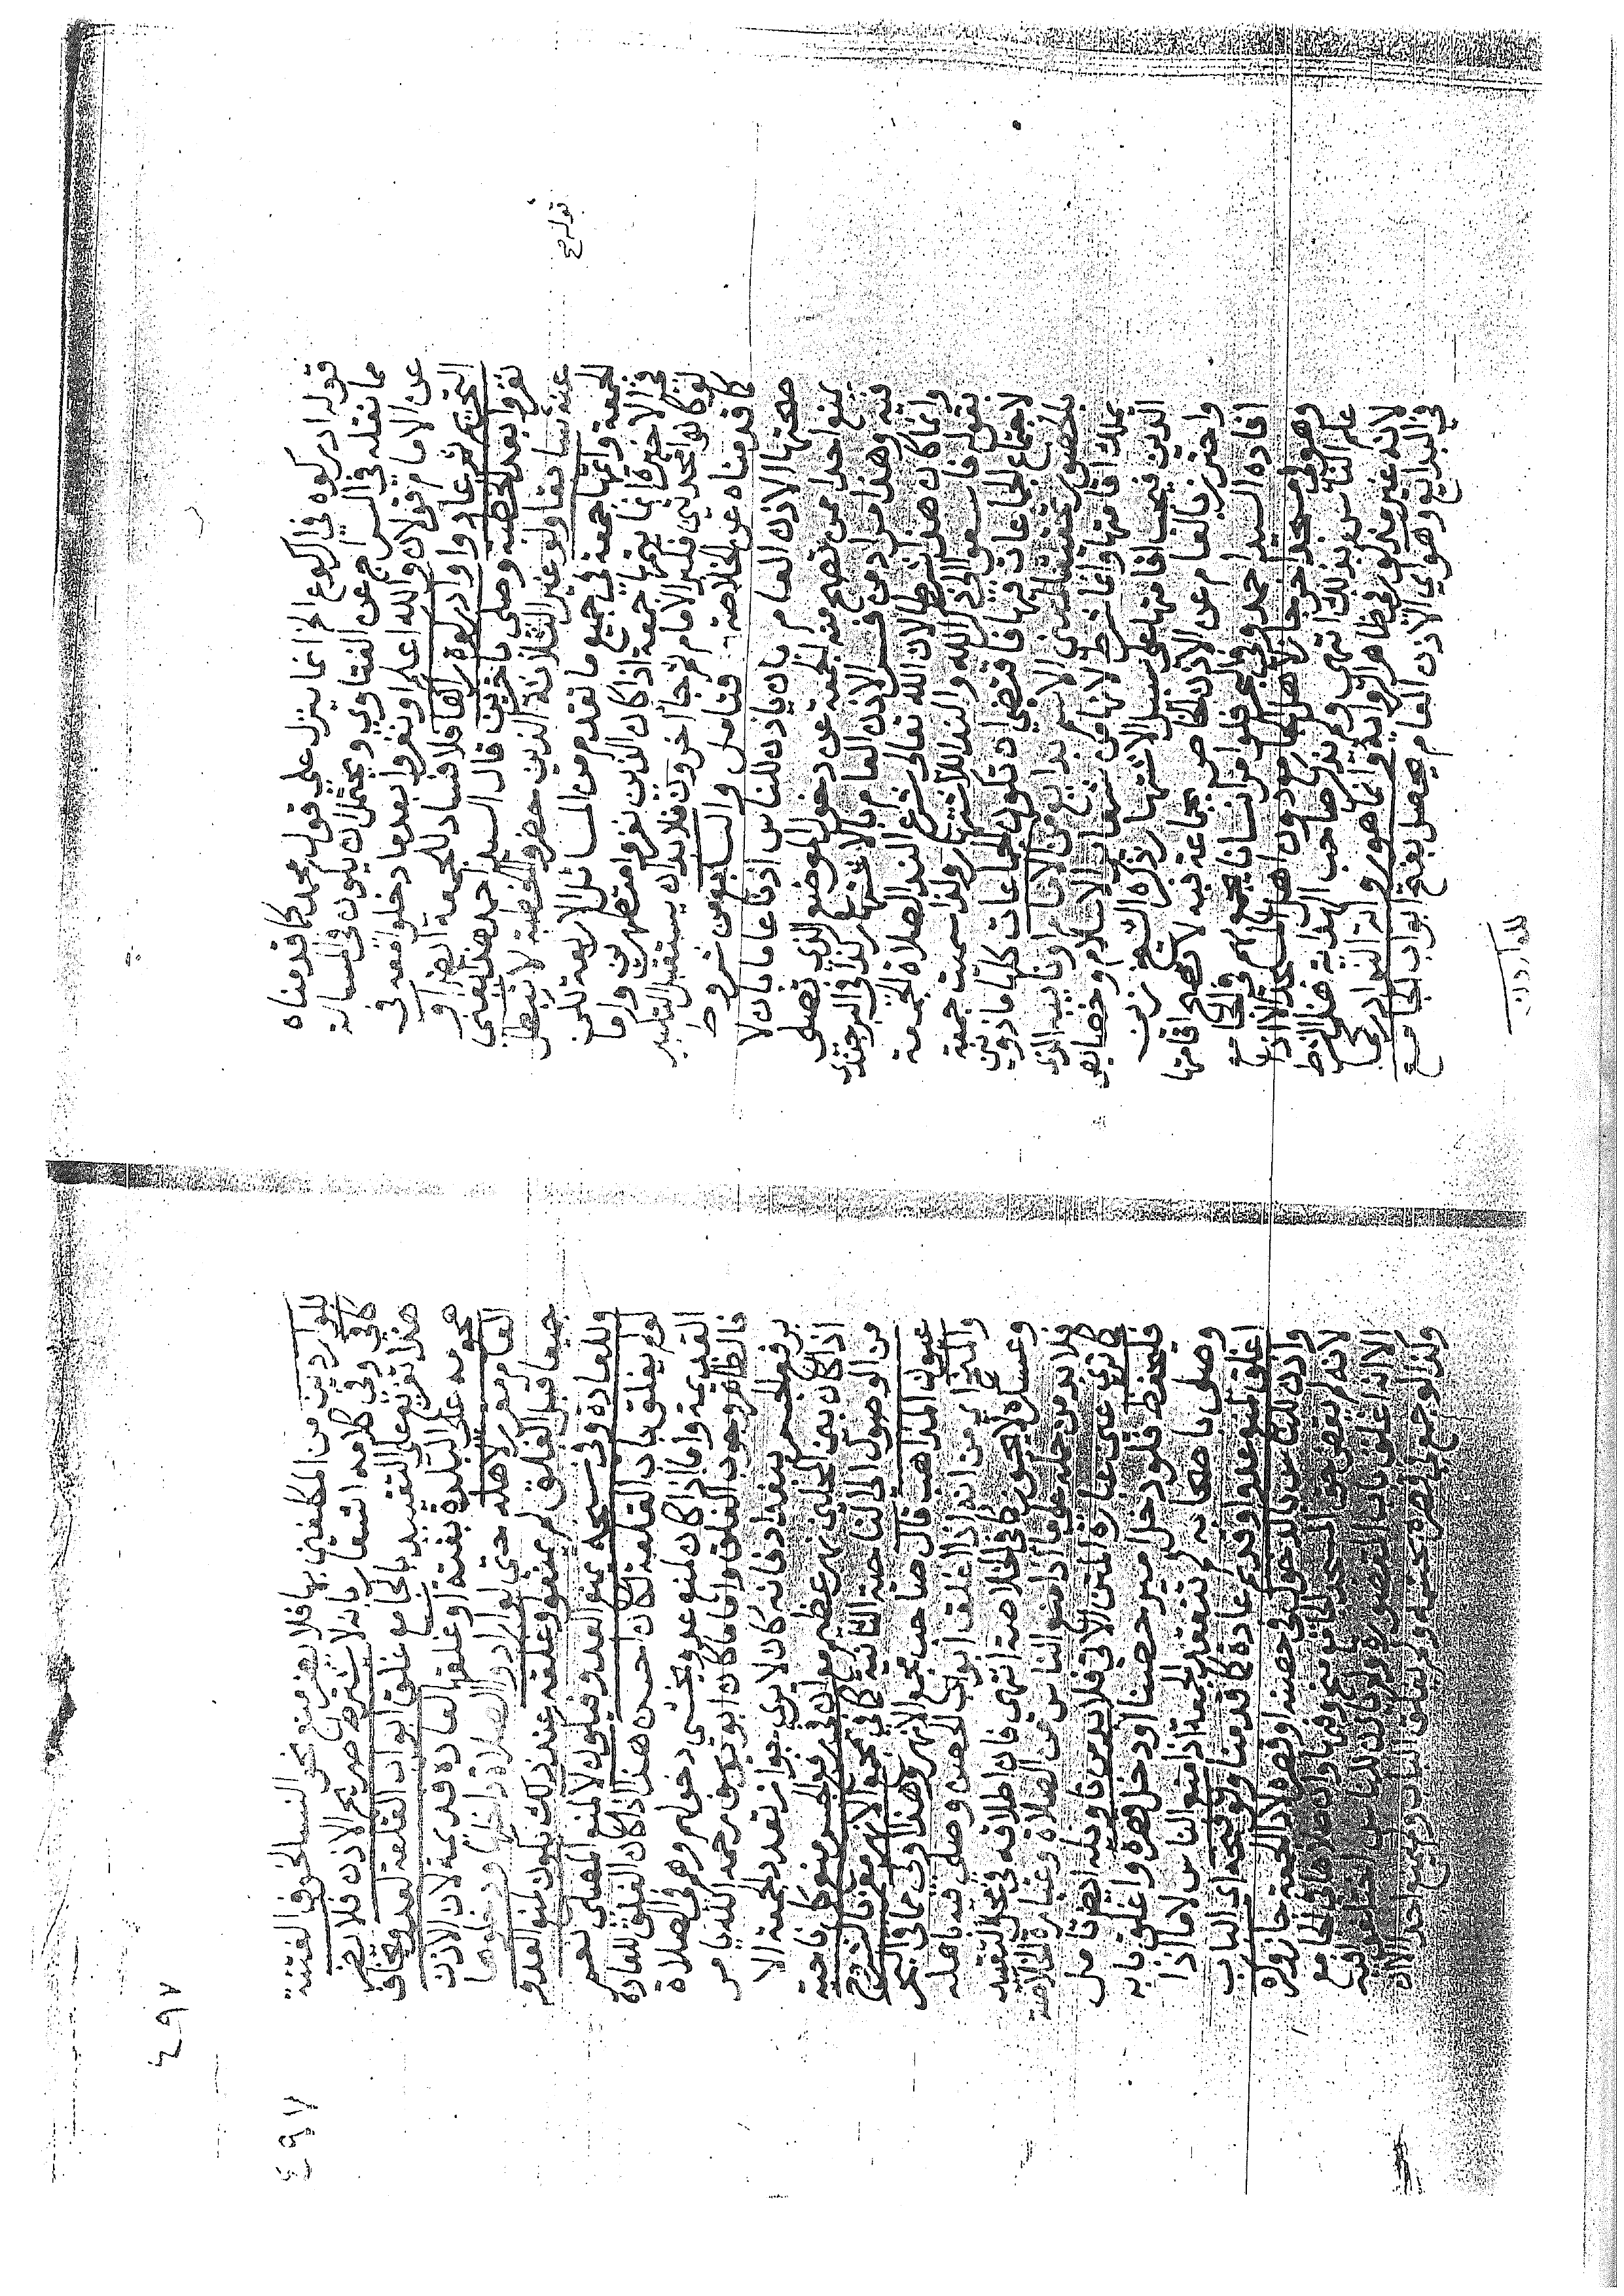 قوله ادركوه في الركوع الخ انما يتنزل على قول محمد كما قدمناه
مما نقله في السراج عن الفتاوي ويحتمل ان يكون في المسالة
عن الامام قولان والله اعلم او نفروا بعدها دخلوا معه في
التحريم ثم عادوا وادركوه راكعا فلا فساد للجمعة ايضا او
نفروا بعد الخطبة وصلى باخرين قال السيد احمد هذا يغني
عنه سابقا ولو غير الثلاثة الذين حضروا الخطبة لا تبطل
الجمعة واتمها جمعة في جميع ما تقدم من المسائل الاربعة لكن
في الاخيرة انما يتمها جمعة اذا كان الذين نفروا متطهرين واما
لو كانوا محدثين فكبر الامام ثم جا اخرون فلا بد ان يستقبل التكبير
كما قدمناه عن الخلاصة فتامل والسابع من شروط
صحتها الاذن العام بان ياذن للناس اذنا عاما بان لا
يمنع احدا ممن تصح منه الجمعة عن دخول الموضع الذي تصلى
فيه وهذا مراد من فسر الاذن العام بالاشتهار كذا في البرجندي
وانما كان هذا شرطا لان الله تعالى شرع النداء لصلاة الجمعة
بقوله فاسعوا الى ذكر الله والنداء للاشتهار ولذا سميت جمعة
لاجتماع الجماعات فيها فاقتضى ان تكون الجماعات كلها ماذونين
بالحضور تحقيقا لمعنى الاسم بدايع من الامام او نايبه الذي
يملك اقامتها وانما شرط لانها من شعاير الاسلام وخصايص
الدين فيجب اقامتها على سبيل الاشتهار ذكره الشيخ زين
واحترز بالعام عن الاذن الخاص بجماعة فيه لا تصح اقامتها
افاده السيد احمد وفي البحر فلو امر انسانا يجمع بهم في الجامع
وهو في مسجد اخر جاز لاهل الجامع دون اهل المسجد الا اذا
علم الناس بذلك انتهى ولم يذكر صاحب الهداية هذا الشرط
لانه غير مذكور في ظاهر الرواية وانما هو رواية النوادر كما
في البدايع وهو اي الاذن العام يحصل بفتح ابواب الجامع
للواردين
قوله مع
للواردين من المكلفين بها فلا يضر منع نحو النساء لخوف الفتنة
كافي وفي كلامه اشعار بانه لا يشترط صريح الاذن فلا يضر
هذا تفريع على التقييد بالجامع غلق ابواب القلعة لعدو يخاف
هجومه على البلدة بغتة او غلقها لعادة قديمة لان الاذن
العام مقرر لاهله حتى لو ارادوا الصلاة داخلها ودخلوها
جميعا قبل الغلق لم يمنعوا وغلقه عند ذلك يكون لمنع العدو
وللعادة وفي نسخه يمنع العدو فيكون لا لمنع المصلي نعم
لو لم يغلق باب القلعة لكان احسن هذا اذا كان الغلق للعادة
القديمة واما اذا كان لمنع عدو يخشى دخولهم وهم في الصلاة
فالظاهر وجوب الغلق واما ما كان ابو يوسف رحمه الله يامر
برفع الجسر ببغداد فانه كان لا يرى جواز تعدد الجمعة الا
اذا كان بين المحلين نهر عظيم مع ان في رفع الجسر منع كل ناحية
من الوصول الى الناحية الثانية كما في مجمع الانهر معزيا لشرح
عيون المذاهب قال صاحب مجمع الانهر وهذا اولى مما في البحر
والمنح من انه اذا اغلق ابواب الحصن وصلى فيه باهله
وعسكره لا يجوز كما في الخلاصة انتهى فان اطلاقه في محل التقييد
فلا بد من حمله على ما اذا منع الناس عن الصلاة وعبارة الخلاصة
كما ترى عين عبارة المتن الاتي فلا بد من تاويله ايضا تامل
فليحفظ فلو دخل امير حصنا او دخل قصره واغلق بابه
وصلى باصحابه لم تنعقد الجمعة اذا منع الناس لا ما اذا
اغلق لمنع عدو او قديم عادة كما قدمنا ولو فتحه اي الباب
واذن للناس بالدخول في حصنه او قصره لاداء الجمعة جاز وكره
لانه لم يقض حق المسجد الجامع بحر وفيه وان صلاها في الجامع
الا انه اغلق باب المقصورة ولم ياذن للناس اختلفوا فيه
ولذا لو جمع في قصره بحشمه ولم يغلق الباب ولم يمنع احدا الا انه
٤٩٧
٤٩٧